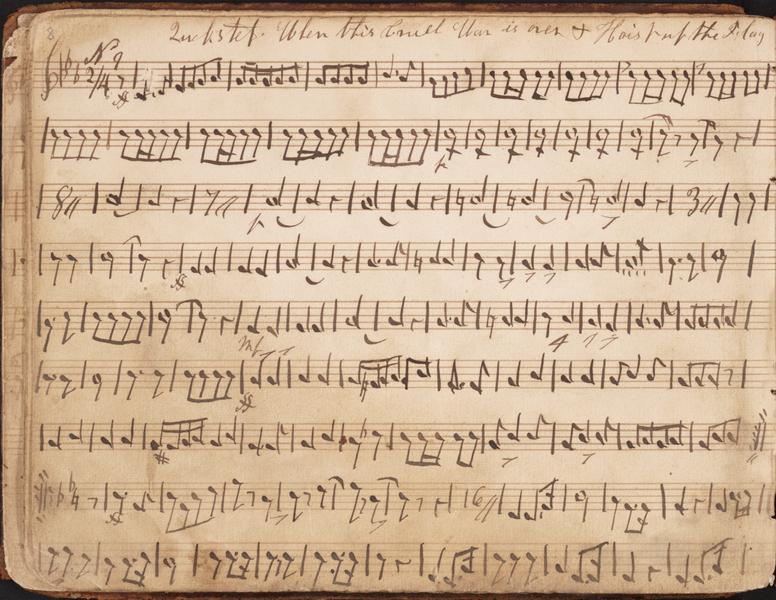 8 Quickstep. When this Cruel War is over & Hoist up the Flag
No 9
2/4
ff
p
8
7
p
3
ff
mf
ff
6